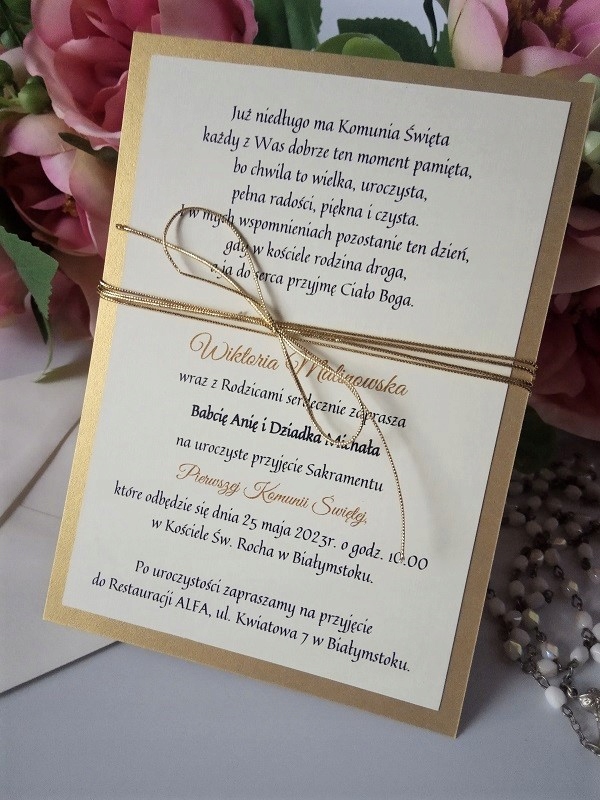 Już niedługo ma Komunia Święta
każdy z Was dobrze ten moment pamięta,
bo chwila to wielka, uroczysta,
pełna radości, piękna i czysta.
I w mych wspomnieniach pozostanie ten dzień,
gdy w kościele rodzina droga,
a ja do serca przyjmę Ciało Boga.
Wiktoria Malinowska
wraz z Rodzicami serdecznie zaprasza
Babcię Anię i Dziadka Michała
na uroczyste przyjęcie Sakramentu
Pierwszej Komunii Świętej,
które odbędzie się dnia 25 maja 2023r. o godz. 10.00
w Kościele Św. Rocha w Białymstoku.
Po uroczystości zapraszamy na przyjęcie
do Restauracji ALFA, ul. Kwiatowa 7 w Białymstoku.